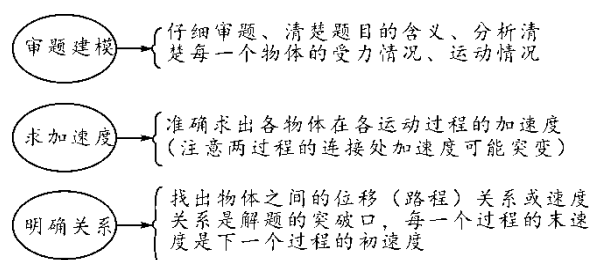 审题建模
仔细审题、清楚题目的含义、分析清
楚每一个物体的受力情况、运动情况
求加速度
准确求出各物体在各运动过程的加速度
(注意两过程的连接处加速度可能突变)
明确关系
找出物体之间的位移(路程)关系或速度
关系是解题的突破口，每一个过程的末速
度是下一个过程的初速度